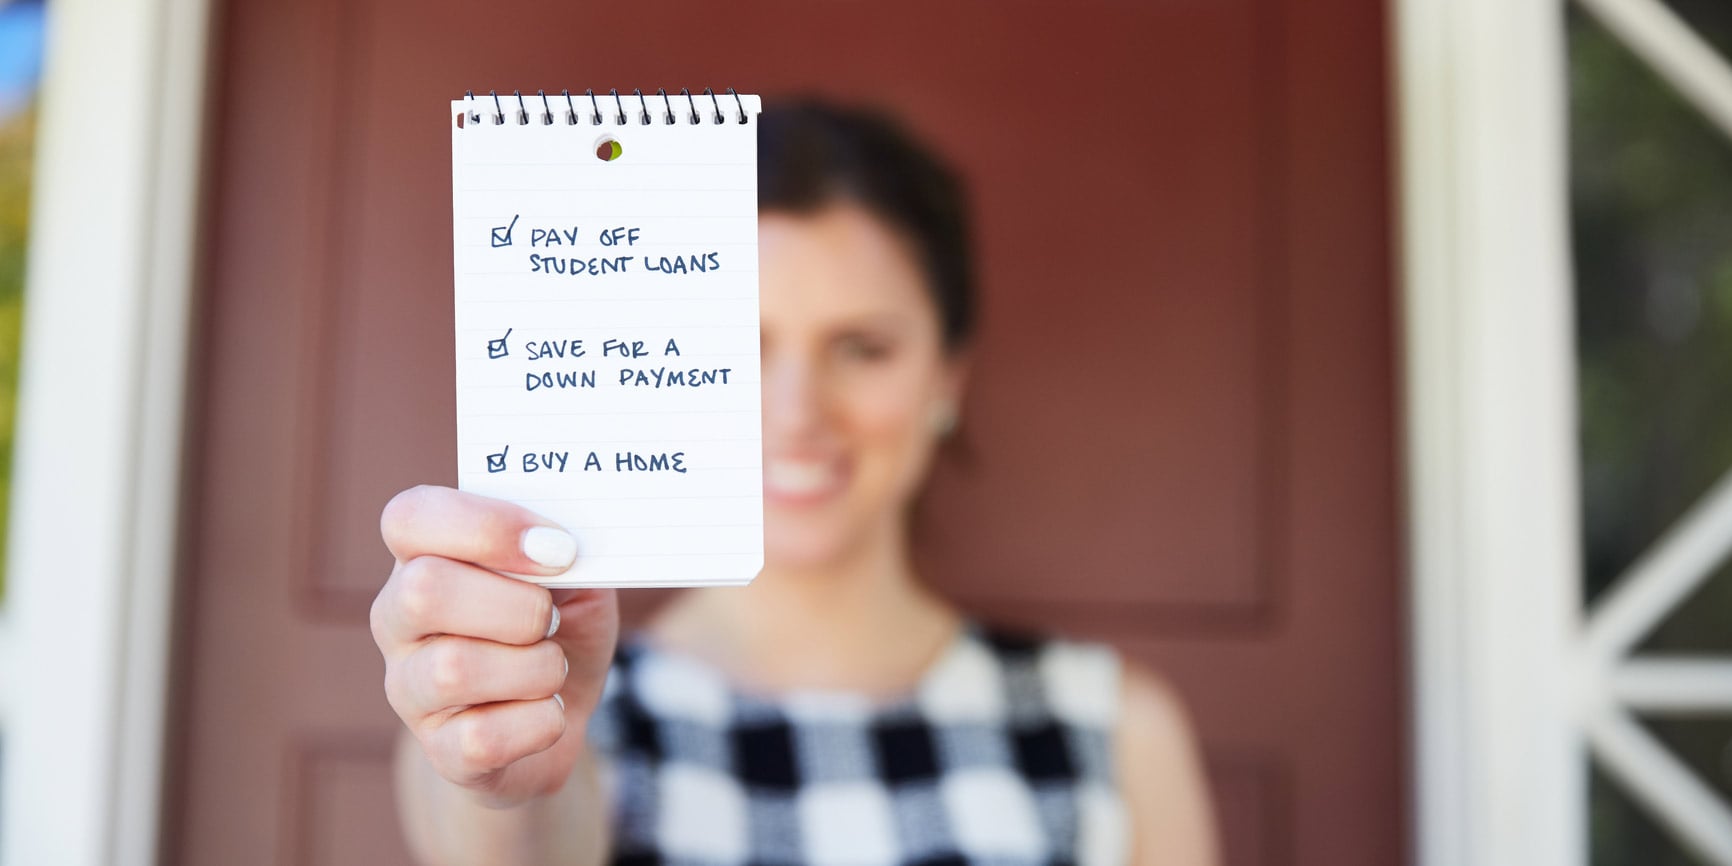 PAY OFF
STUDENT LOANS
SAVE FOR A
DOWN PAYMENT
BUY A HOME